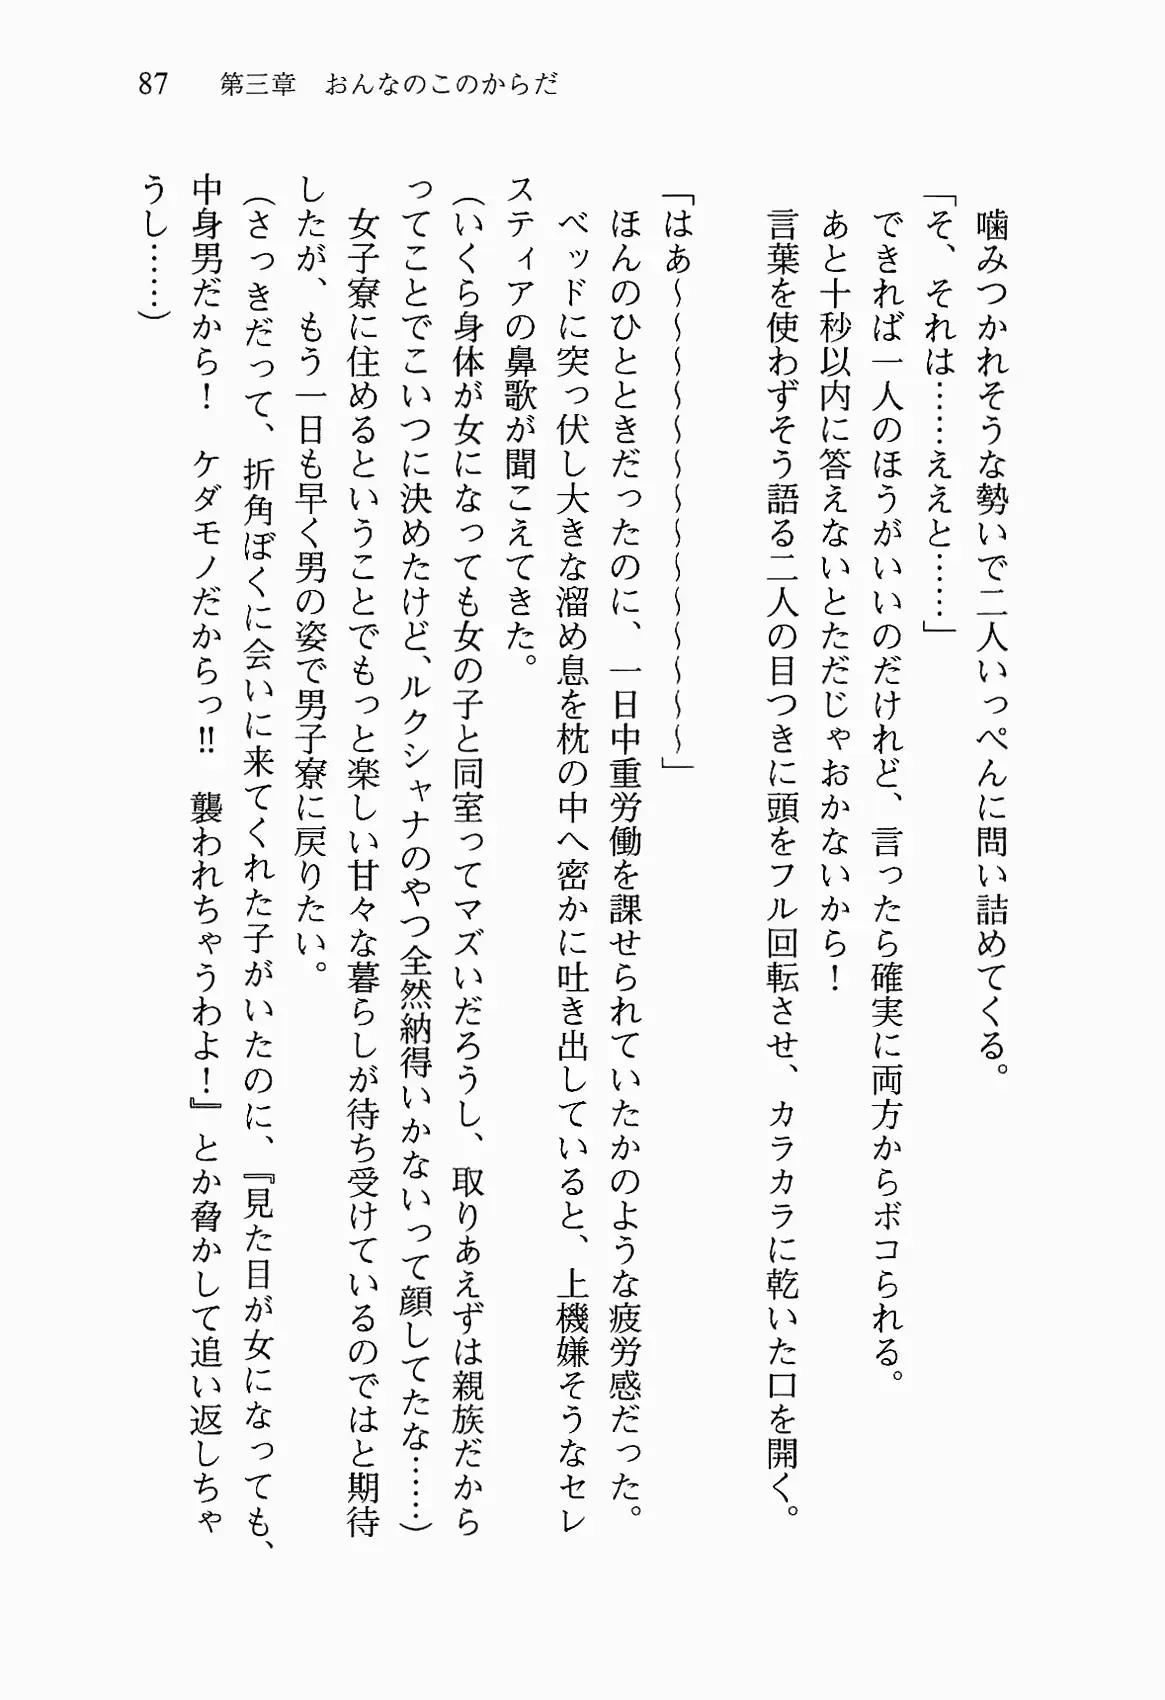 87 第三章 おんなのこのからだ
噛みつかれそうな勢いで二人いっぺんに問い詰めてくる。
「そ、それは……ええと……」
できれば一人のほうがいいのだけれど、言ったら確実に両方からボコられる。
あと十秒以内に答えないとただじゃおかないから！
言葉を使わずそう語る二人の目つきに頭をフル回転させ、カラカラに乾いた口を開く。
「はあ～～～～～～～～～～～～」
ほんのひとときだったのに、一日中重労働を課せられていたかのような疲労感だった。
ベッドに突っ伏し大きな溜め息を枕の中へ密かに吐き出していると、上機嫌そうなセレ
スティアの鼻歌が聞こえてきた。
（いくら身体が女になっても女の子と同室ってマズいだろうし、取りあえずは親族だから
ってことでこいつに決めたけど、ルクシャナのやつ全然納得いかないって顔してたな……）
女子寮に住めるということでもっと楽しい甘々な暮らしが待ち受けているのではと期待
したが、もう一日も早く男の姿で男子寮に戻りたい。
（さっきだって、折角ぼくに会いに来てくれた子がいたのに、『見た目が女になっても、
中身男だから！　ケダモノだからっ!!　襲われちゃうわよ！』とか脅かして追い返しちゃ
うし……）